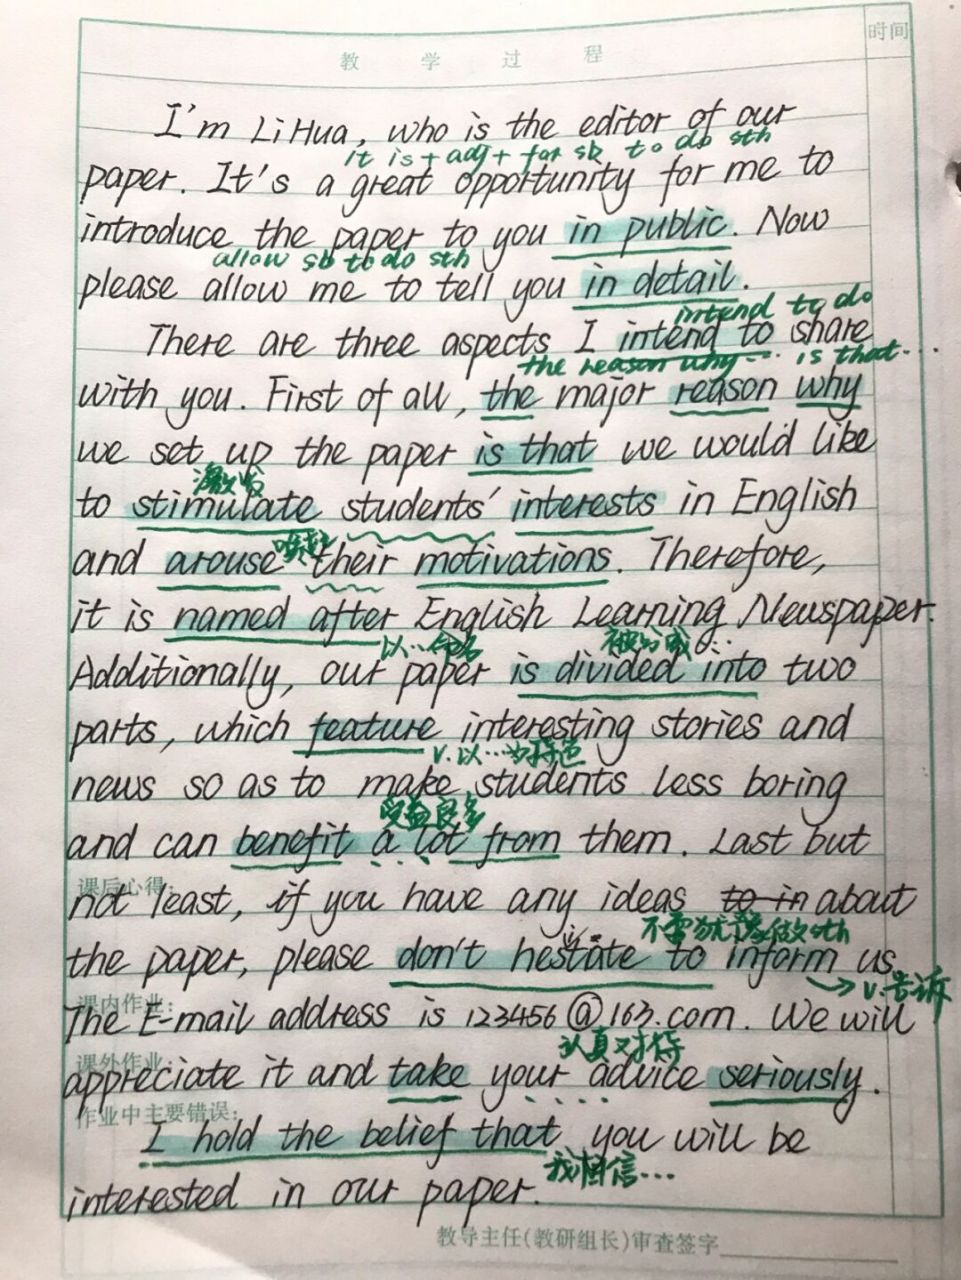 时间
教 学 过 程
I'm Li Hua, who is the editor of our
it is + adj + for sb to do sth
paper. It's a great opportunity for me to
introduce the paper to you in public. Now
allow sb to do sth
please allow me to tell you in detail.
intend to do
There are three aspects I intend to share
the reason why... is that...
with you. First of all, the major reason why
we set up the paper is that we would like
激发
to stimulate students' interests in English
唤起
and arouse their motivations. Therefore,
it is named after English Learning Newspaper.
以...命名 被分成...
Additionally, our paper is divided into two
parts, which feature interesting stories and
v. 以...为特色
news so as to make students less boring
受益良多
and can benefit a lot from them. Last but
课后心得:
not least, if you have any ideas to in about
不要犹豫做sth
the paper, please don't hestate to inform us.
→ v. 告诉
课内作业:
The E-mail address is 123456@163.com. We will
认真对待
课外作业:
appreciate it and take your advice seriously.
作业中主要错误:
I hold the belief that you will be
我相信...
interested in our paper.
教导主任(教研组长)审查签字